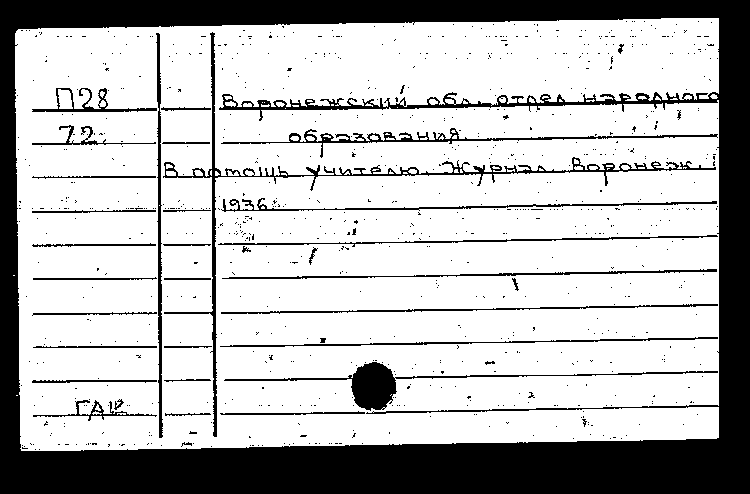 П28
Воронежский обл. отдел народного
72.
образования.
В помощь учителю. Журнал. Воронеж.
1936.